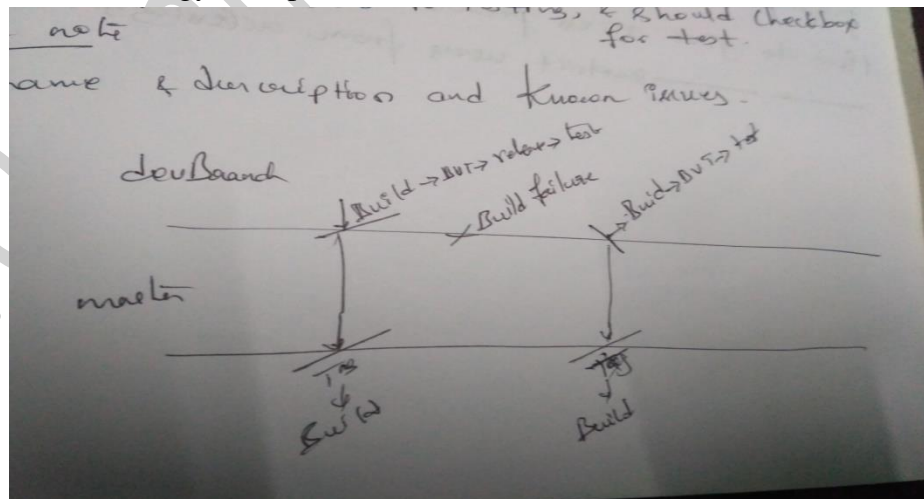 to testing, & should checkbox
for test.
note
ame & description and known issues.
devBranch
Build → BVT → release → test
Build failure
Build → BVT → test
master
Tag
Tag
Build
Build